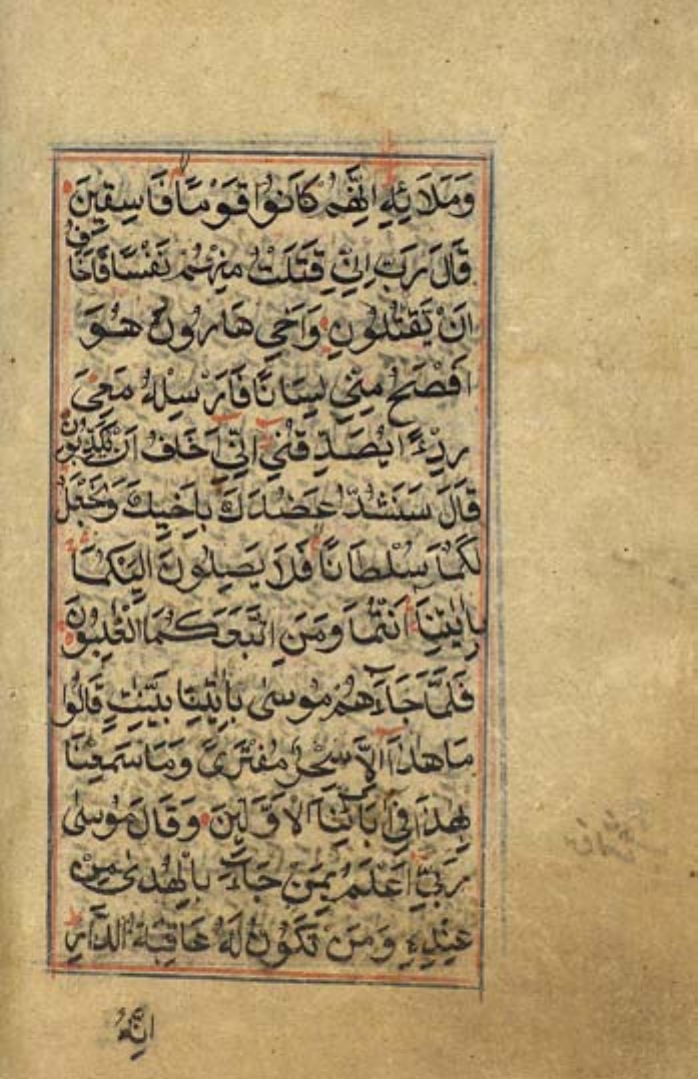 وَمَلَائِهِ اِنَّهُمْ كَانُوا قَوْمًا فَاسِقِينَ
قَالَ رَبِّ اِنِّي قَتَلْتُ مِنْهُمْ نَفْسًا فَاَخَافُ
اَنْ يَقْتُلُونِ وَاَخِي هَارُونُ هُوَ
اَفْصَحُ مِنِّي لِسَانًا فَاَرْسِلْهُ مَعِيَ
رِدْءًا يُصَدِّقُنِي اِنِّي اَخَافُ اَنْ يُكَذِّبُونِ
قَالَ سَنَشُدُّ عَضُدَكَ بِاَخِيكَ وَنَجْعَلُ
لَكُمَا سُلْطَانًا فَلَا يَصِلُونَ اِلَيْكُمَا
بِاٰيٰتِنَا اَنْتُمَا وَمَنِ اتَّبَعَكُمَا الْغٰلِبُونَ
فَلَمَّا جَاءَهُمْ مُوسٰى بِاٰيٰتِنَا بَيِّنٰتٍ قَالُوا
مَا هٰذَا اِلَّا سِحْرٌ مُفْتَرًى وَمَا سَمِعْنَا
بِهٰذَا فِي اٰبَائِنَا الْاَوَّلِينَ وَقَالَ مُوسٰى
رَبِّي اَعْلَمُ بِمَنْ جَاءَ بِالْهُدٰى مِنْ
عِنْدِهِ وَمَنْ تَكُونُ لَهُ عَاقِبَةُ الدَّارِ
اِنَّهُ